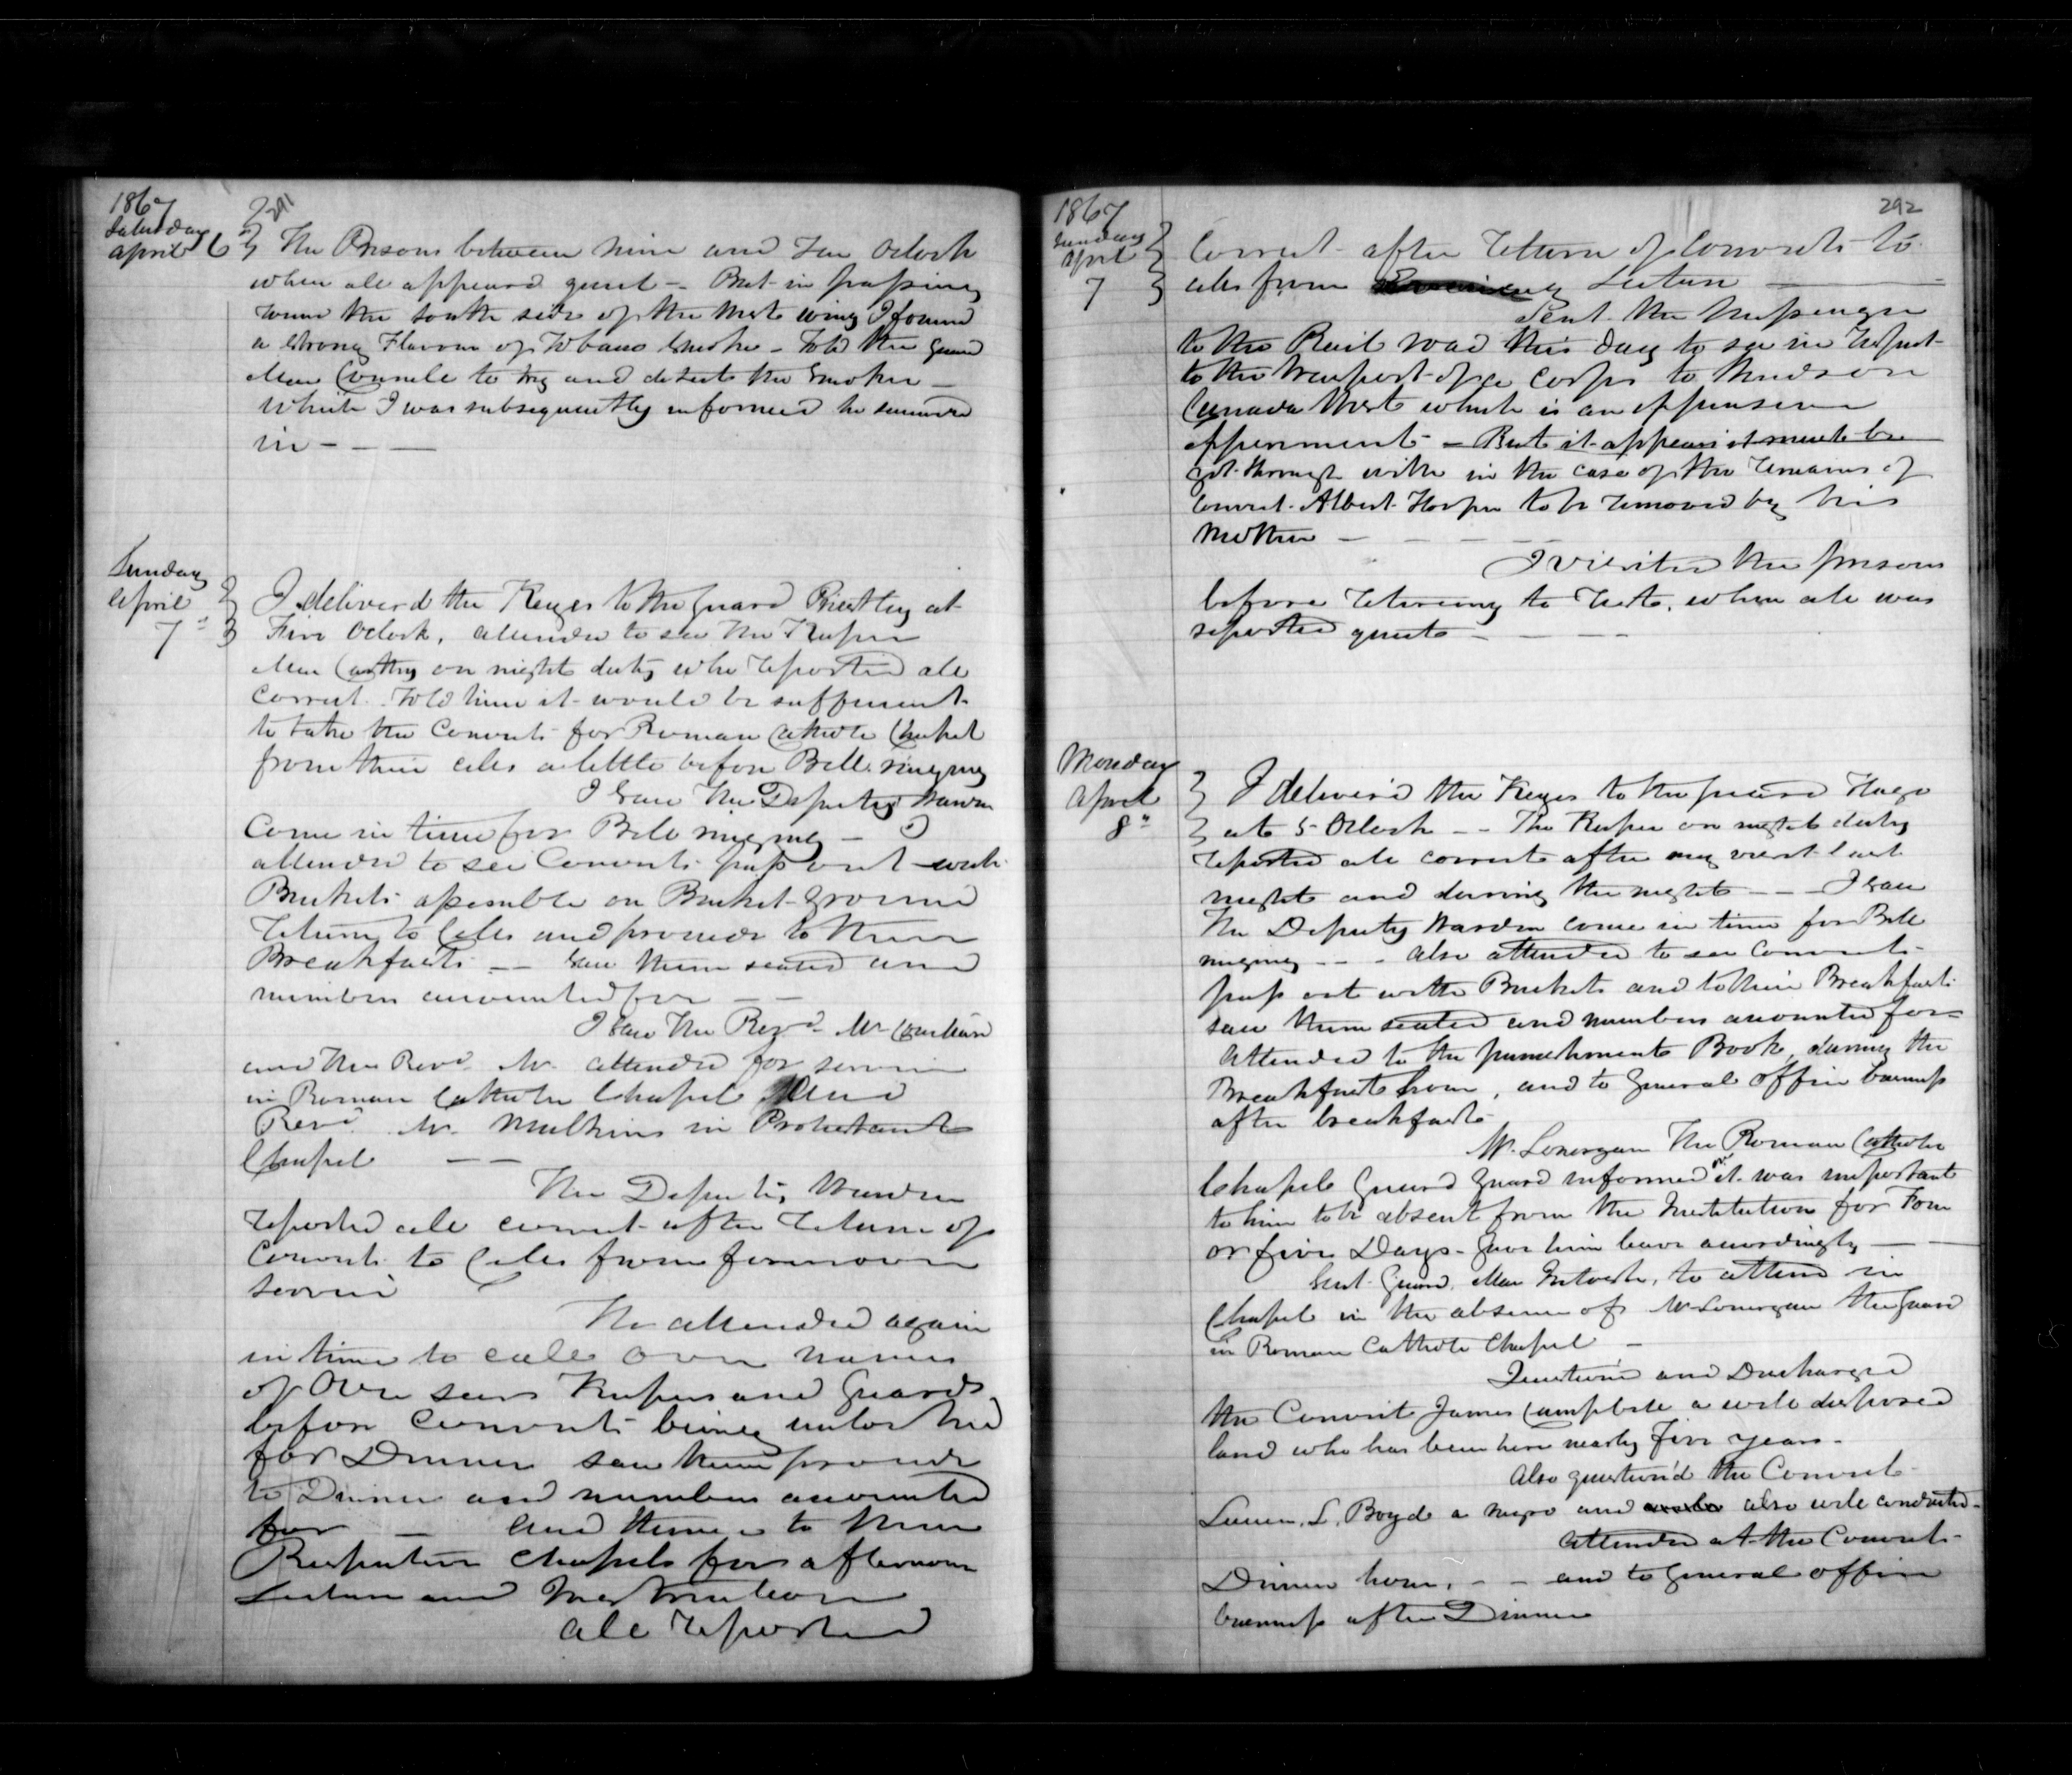 1867
291
Saturday
April 6
The Prisons between nine and Ten Oclock
when all appeard quiet — But in passing
round the south side of the West wing I found
a strong Flavour of Tobacco Smoke — Told the guard
Man Council to try and detect the Smoker —
Which I was subsequently informed he succeeded
in — — —
Sunday
April
7th
I deliverd the Keyes to the guard Priestley at
Five Oclock, attended to see the Keeper
Man Carthy on night duty who reported all
correct. Told him it would be sufficient
to take the Convicts for Roman Catholic Chapel
from their cells a little before Bell ringing
I saw The Deputy Warden
Come in time for Bell ringing — I
attended to see Convicts pass out with
Buckets assemble on Bucket Ground
Return to Cells and proceed to their
Breakfasts — — Saw them seated and
numbers accounted for — —
I saw The Revd Mr
and The Revd Mr attended for service
in Roman Catholic Chapel And
Revd Mr Mulkins in Protestant
Chapel — —
The Deputy Warden
reported all correct after return of
Convicts to Cells from forenoon
service
He attended again
in time to call over names
of Over seers Keepers and Guards
before Convicts being unlocked
for Dinner saw them proceed
to Dinner and numbers accounted
for — and thence to their
Respective Chapels for afternoon
Lecture and Instruction
All reported
1867
292
Sunday
April
7
Correct after return of Convicts to
cells from Lecture —
Sent the Messenger
to the Rail road this day to see in respect
to the transport of a Corps to
Canada West which is an offensive
— But it appears it must be
got through with in the case of the remains of
Convict Albert Harper to be removed by his
Mother — — — — —
I visited the prisons
before retireing to rest, when all was
reported quiet — — —
Monday
April
8th
I deliver'd the Keyes to the guard
at 5 Oclock — — The Keeper on night duty
reported all correct after my visit last
night and during the night — — I saw
The Deputy Warden come in time for Bell
ringing — — — also attended to see Convicts
pass out with Buckets and to their Breakfast
saw them seated and numbers accounted for —
attended to the punishment Book, during the
Breakfast hour, and to general office business
after breakfast
Mr. Lonergan The Roman Catholic
Chapel Guard Guard informed me it was important
to him to be absent from the Institution for Four
or five Days — gave him leave accordingly — —
Sent Guard, Man, to attend in
Chapel in the absence of Mr Lonergan the Guard
in Roman Catholic Chapel —
Question'd and Discharged
the Convict James Campbell a well disposed
land who has been here nearly five years —
Also question'd the Convict
L. Boyd a negro and also well conducted —
attended at the Convicts
Dinner hour, — — and to general office
business after Dinner